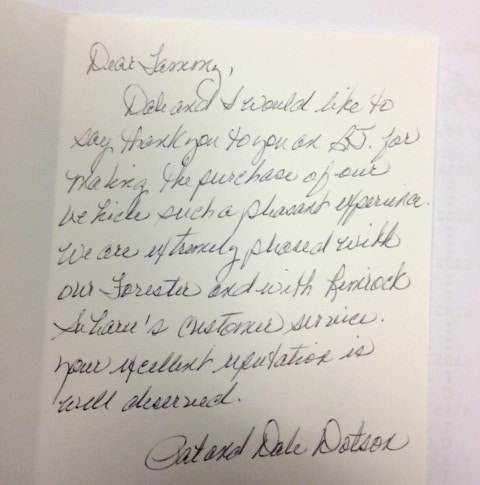 Dear Tammy,
Dale and I would like to
say thank you to you an B.J. for
making the purchase of our
vehicle such a pleasant experience.
We are extremely pleased with
our Forester and with Rimrock
Subaru's customer service.
Your excellent reputation is
well deserved.
Pat and Dale Dotson